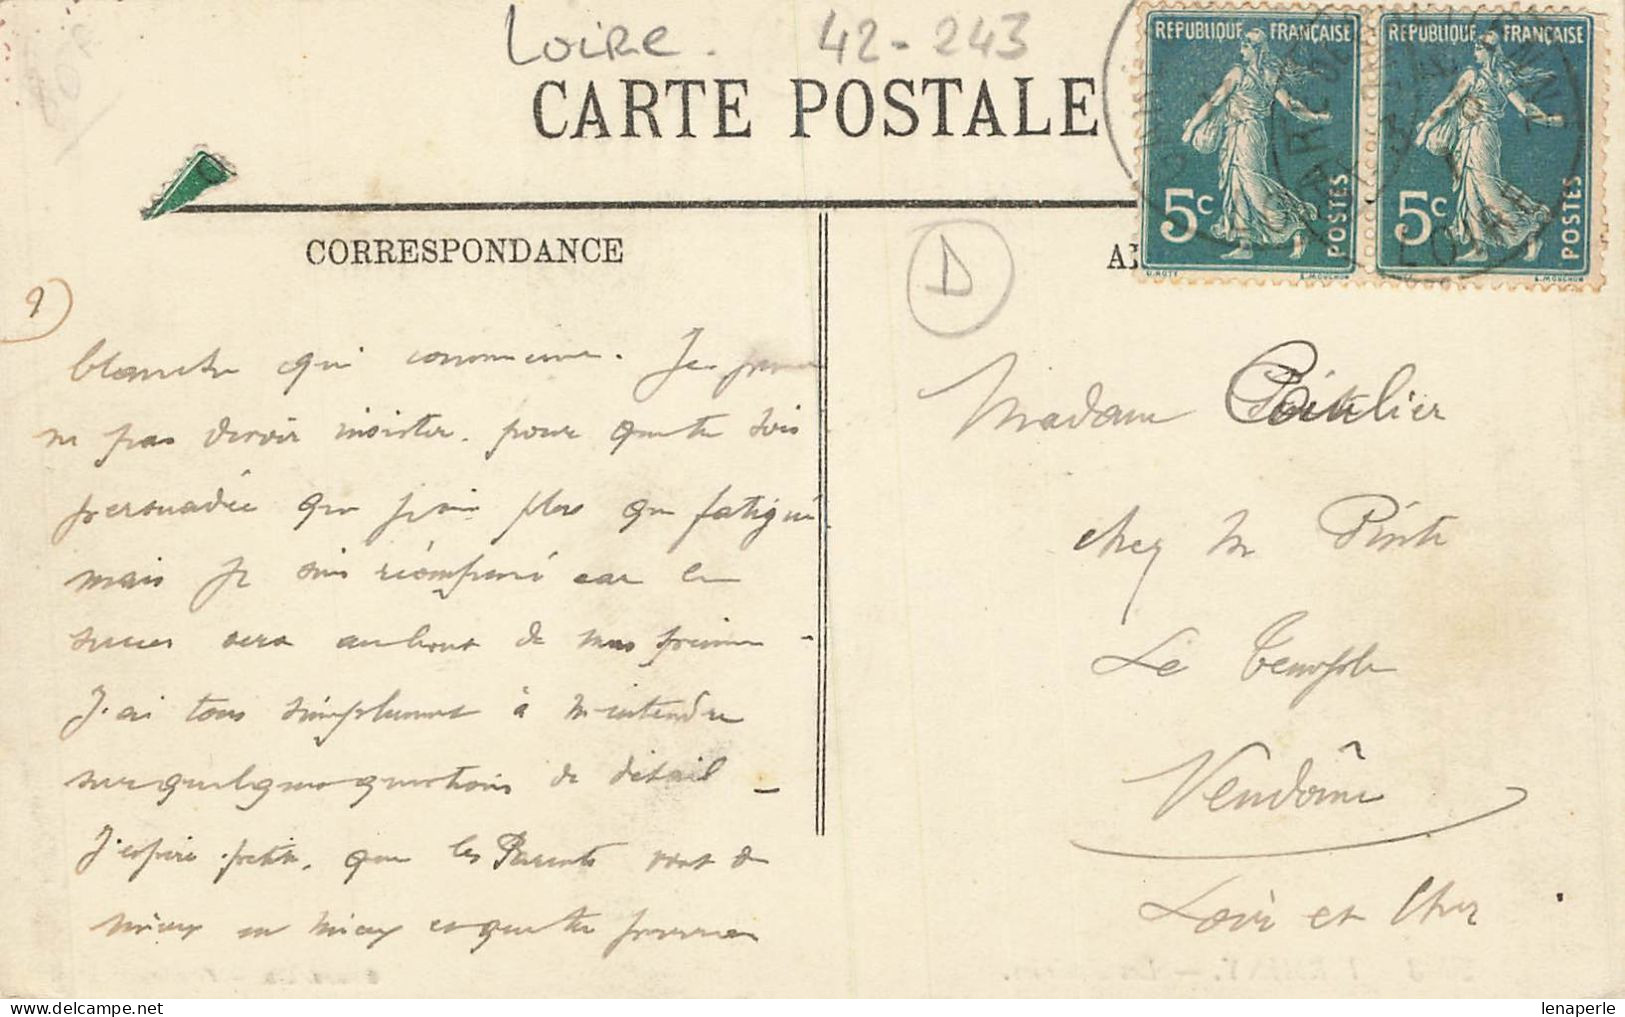 Loire. 42-243
CARTE POSTALE
REPUBLIQUE FRANÇAISE REPUBLIQUE FRANÇAISE
5c POSTES 5c POSTES
O. ROTY L. MOUCHON L. MOUCHON
LOIRE
CORRESPONDANCE
D
blanche qui commence. Je pense
ne pas devoir insister. pour que tu sois
persuadée que je suis plus que fatigué
mais je suis récompensé car le
succès sera au bout de mes peines -
J'ai tout simplement à m'entendre
sur quelques questions de détail -
J'espère petite, que les Parents vont de
mieux en mieux et que tu pourras
Madame
chez M Pinte
Le Temple
Vendôme
Loir et Cher
lenaperle